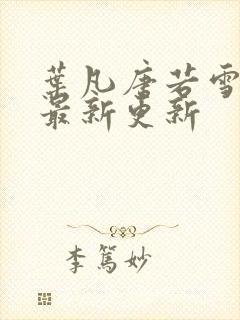 葉凡唐若雪
最新更新
李篤妙